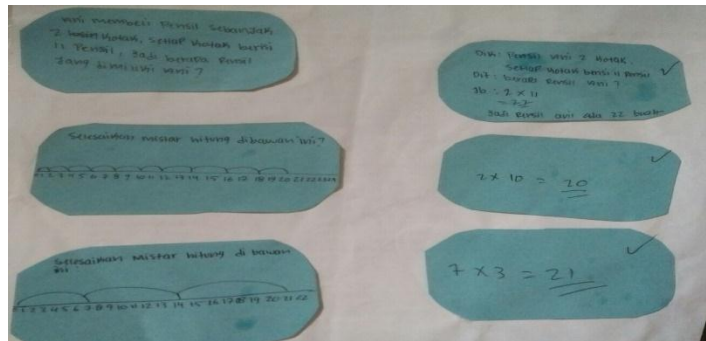 membeli Pensil sebanyak
2 kotak, setiap kotak berisi
11 Pensil, Jadi berapa Pensil
yang dimiliki
Selesaikan mistar hitung dibawah ini?
1 2 3 4 5 6 7 8 9 10 11 12 13 14 15 16 17 18 19 20 21 22 23 24
Selesaikan Mistar hitung di bawah
ini
1 2 3 4 5 6 7 8 9 10 11 12 13 14 15 16 17 18 19 20 21 22
Dik: Pensil 2 kotak
Setiap kotak berisi 11 Pensil
Dit: berapa Pensil
Jb : 2 x 11
= 22
Jadi Pensil ada 22 buah
2 x 10 = 20
7 x 3 = 21